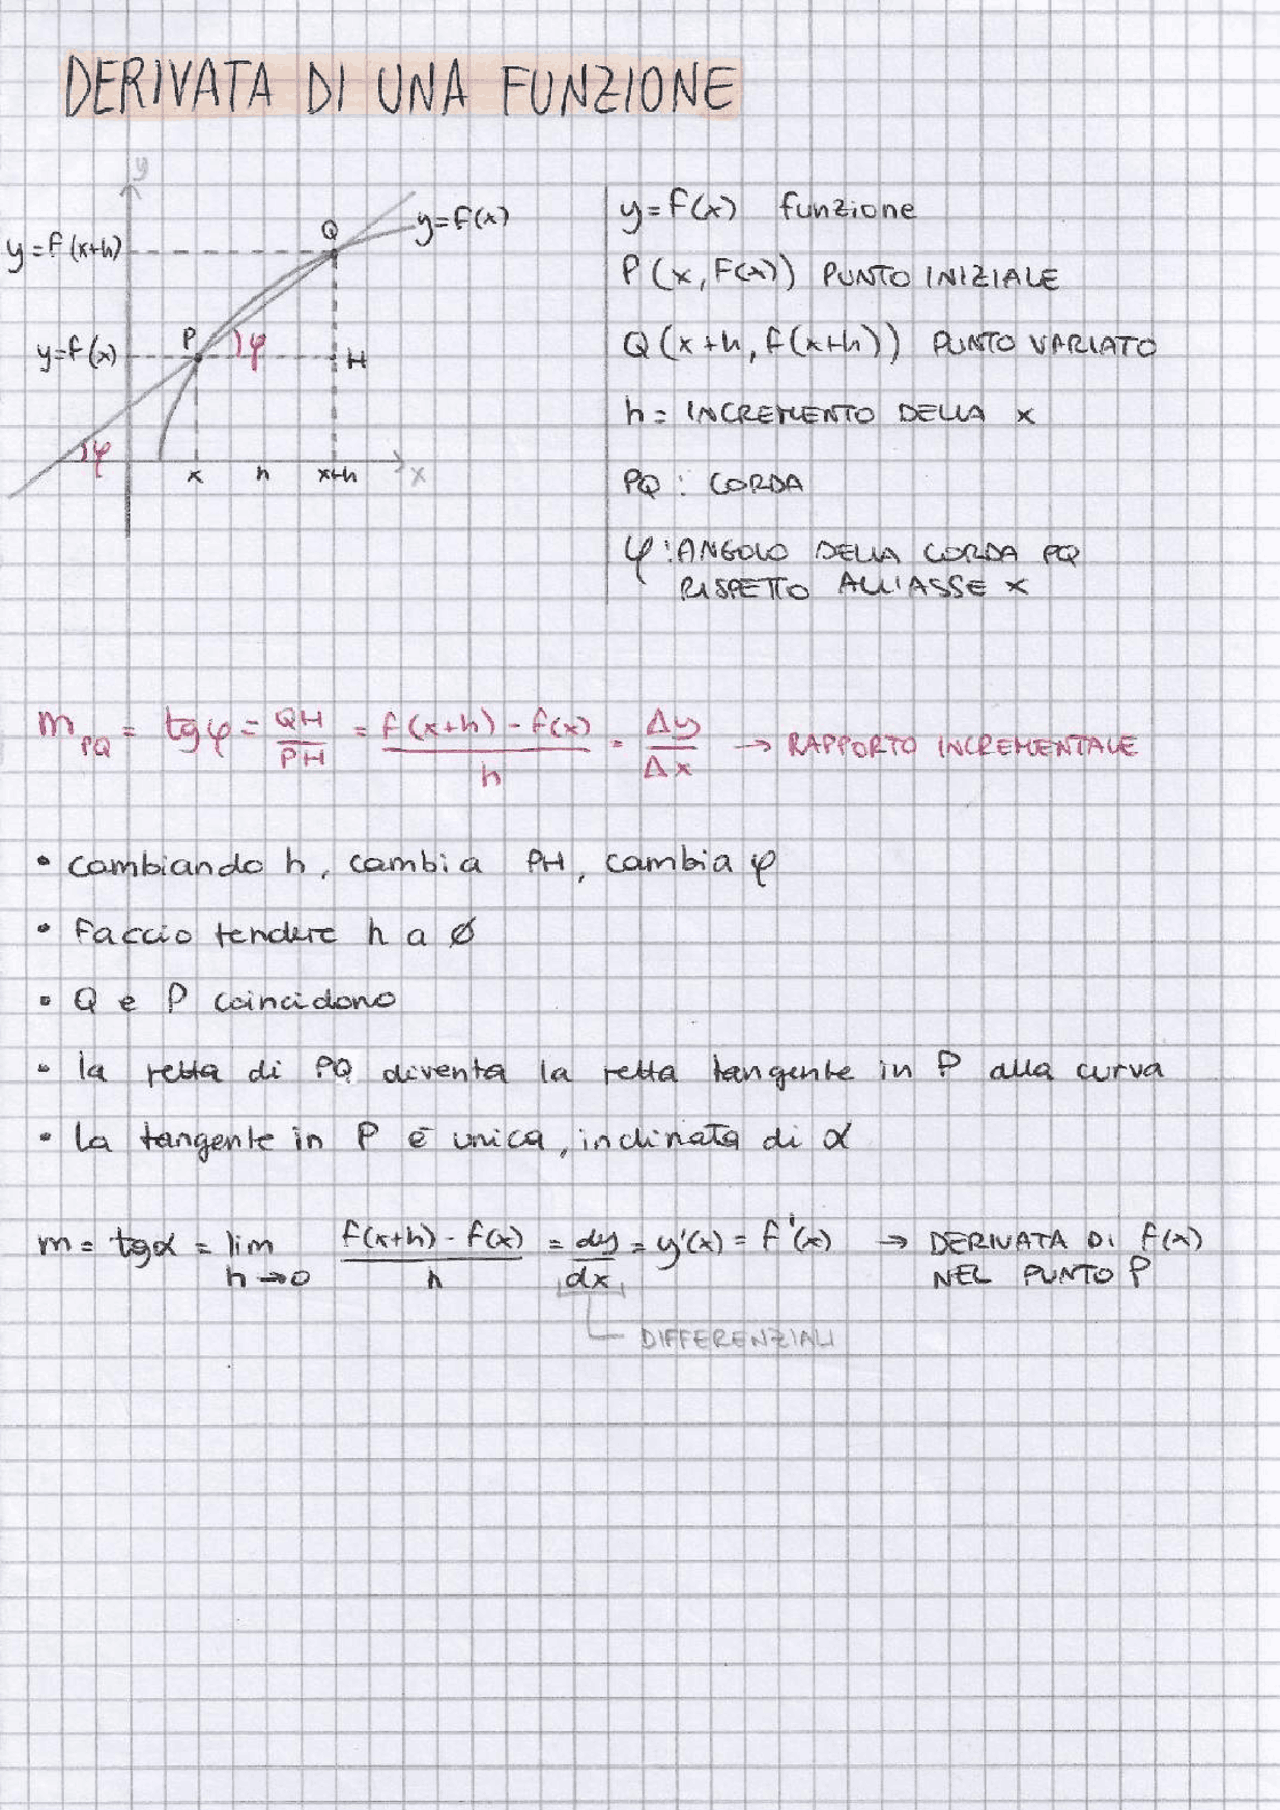 DERIVATA DI UNA FUNZIONE
y
Q
y=f(x)
y=f(x+h)
P
φ
y=f(x)
H
φ
x h x+h x
y=f(x) funzione
P(x, F(x)) PUNTO INIZIALE
Q(x+h, f(x+h)) PUNTO VARIATO
h= INCREMENTO DELLA x
PQ: CORDA
φ: ANGOLO DELLA CORDA PQ
RISPETTO ALL'ASSE x
m_PQ = tgφ = QH/PH = (f(x+h) - f(x))/h = Δy/Δx → RAPPORTO INCREMENTALE
• cambiando h, cambia PH, cambia φ
• Faccio tendere h a Ø
• Q e P coincidono
• la retta di PQ diventa la retta tangente in P alla curva
• La tangente in P è unica, inclinata di α
m = tgα = lim h→0 (f(x+h) - f(x))/h = dy/dx = y'(x) = f'(x) → DERIVATA DI f(x)
NEL PUNTO P
DIFFERENZIALI